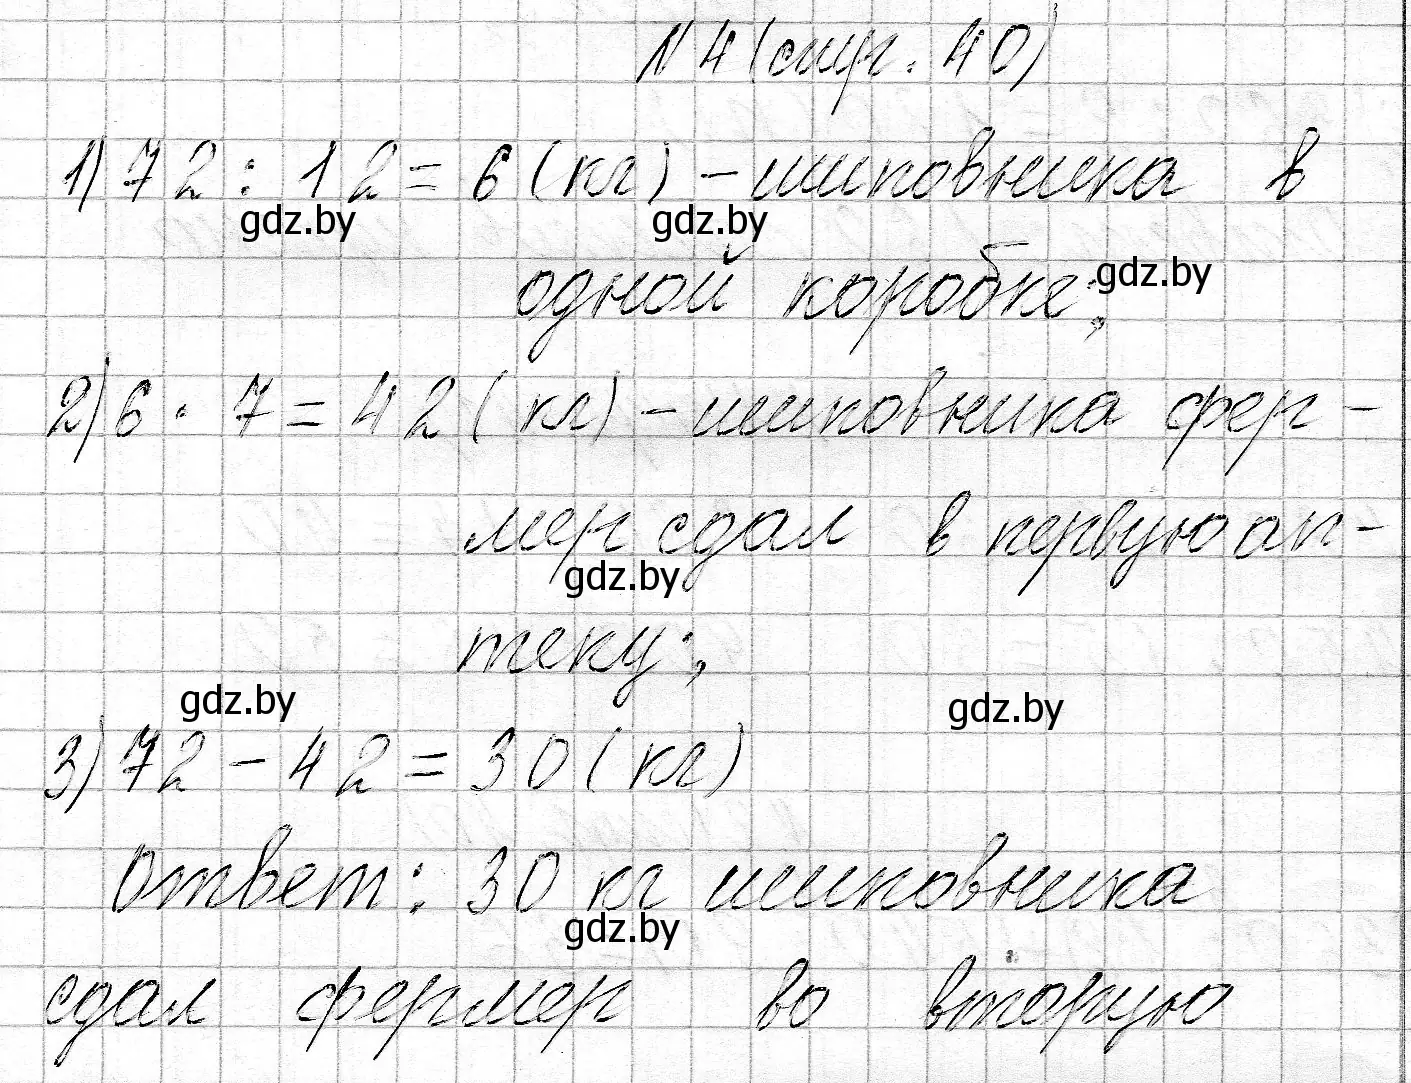 N 4 (стр. 40)
1) 72 : 12 = 6 (кг) - шиповника в
gdz.by gdz.by
одной коробке;
gdz.by
2) 6 · 7 = 42 (кг) - шиповника фер-
мер сдал в первую ап-
gdz.by
теку;
gdz.by gdz.by
3) 72 - 42 = 30 (кг)
Ответ: 30 кг шиповника
gdz.by
сдал фермер во вторую